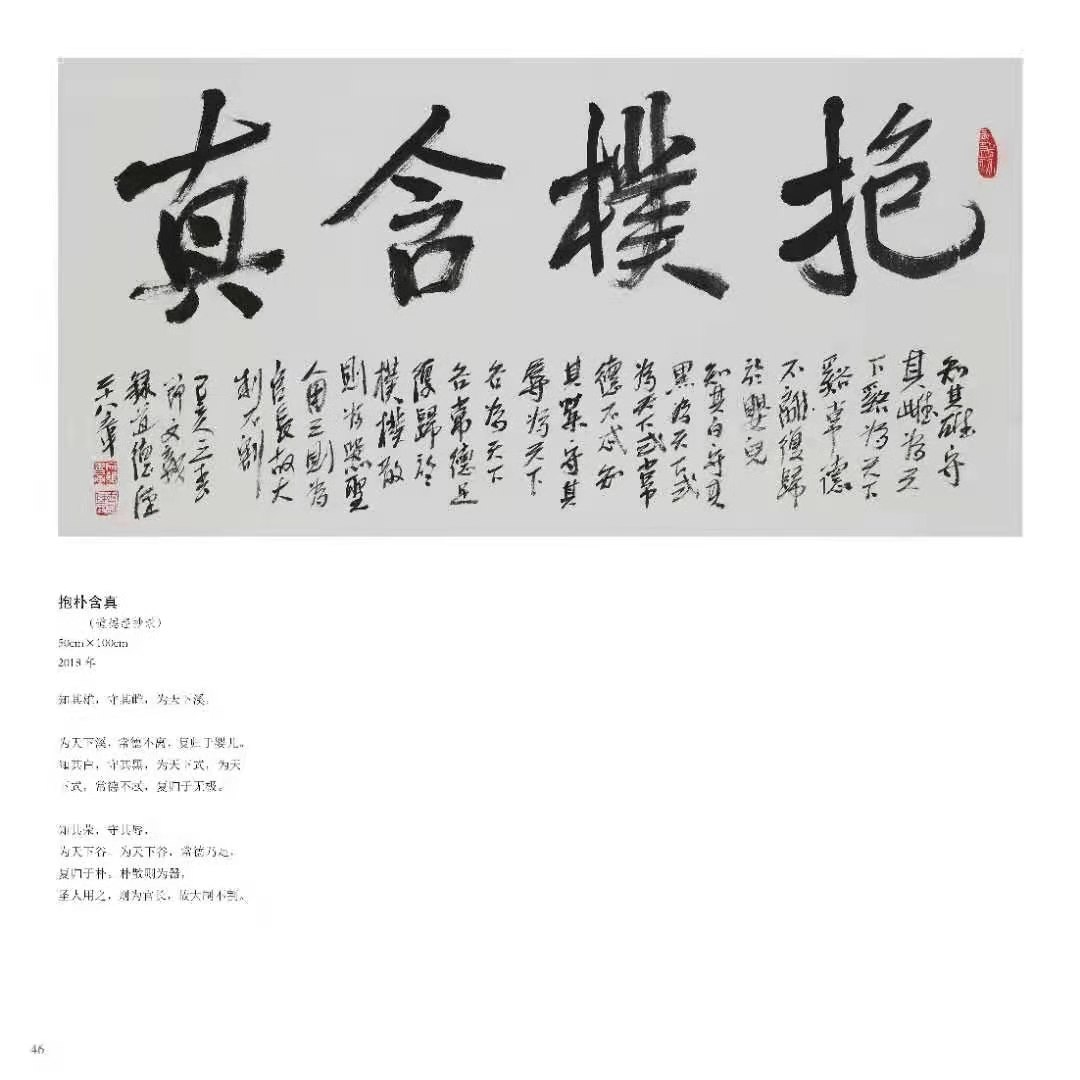 抱樸含真
知其雄守
其雌為天
下谿為天下
谿常德
不離復歸
於嬰兒
知其白守其
黑為天下式
為天下式常
德不忒知
其榮守其
辱為天下
谷為天下
谷常德足
復歸於
樸樸散
則為器聖
人用之則為
官長故大
制不割
己亥之春
錄道德經
二十八章
抱朴含真
50cm×100cm
2018 年
知其雄，守其雌，为天下溪，
为天下溪，常德不离，复归于婴儿。
知其白，守其黑，为天下式，为天
下式，常德不忒，复归于无极。
知其荣，守其辱，
为天下谷，为天下谷，常德乃足，
复归于朴。朴散则为器，
圣人用之，则为官长，故大制不割。
46